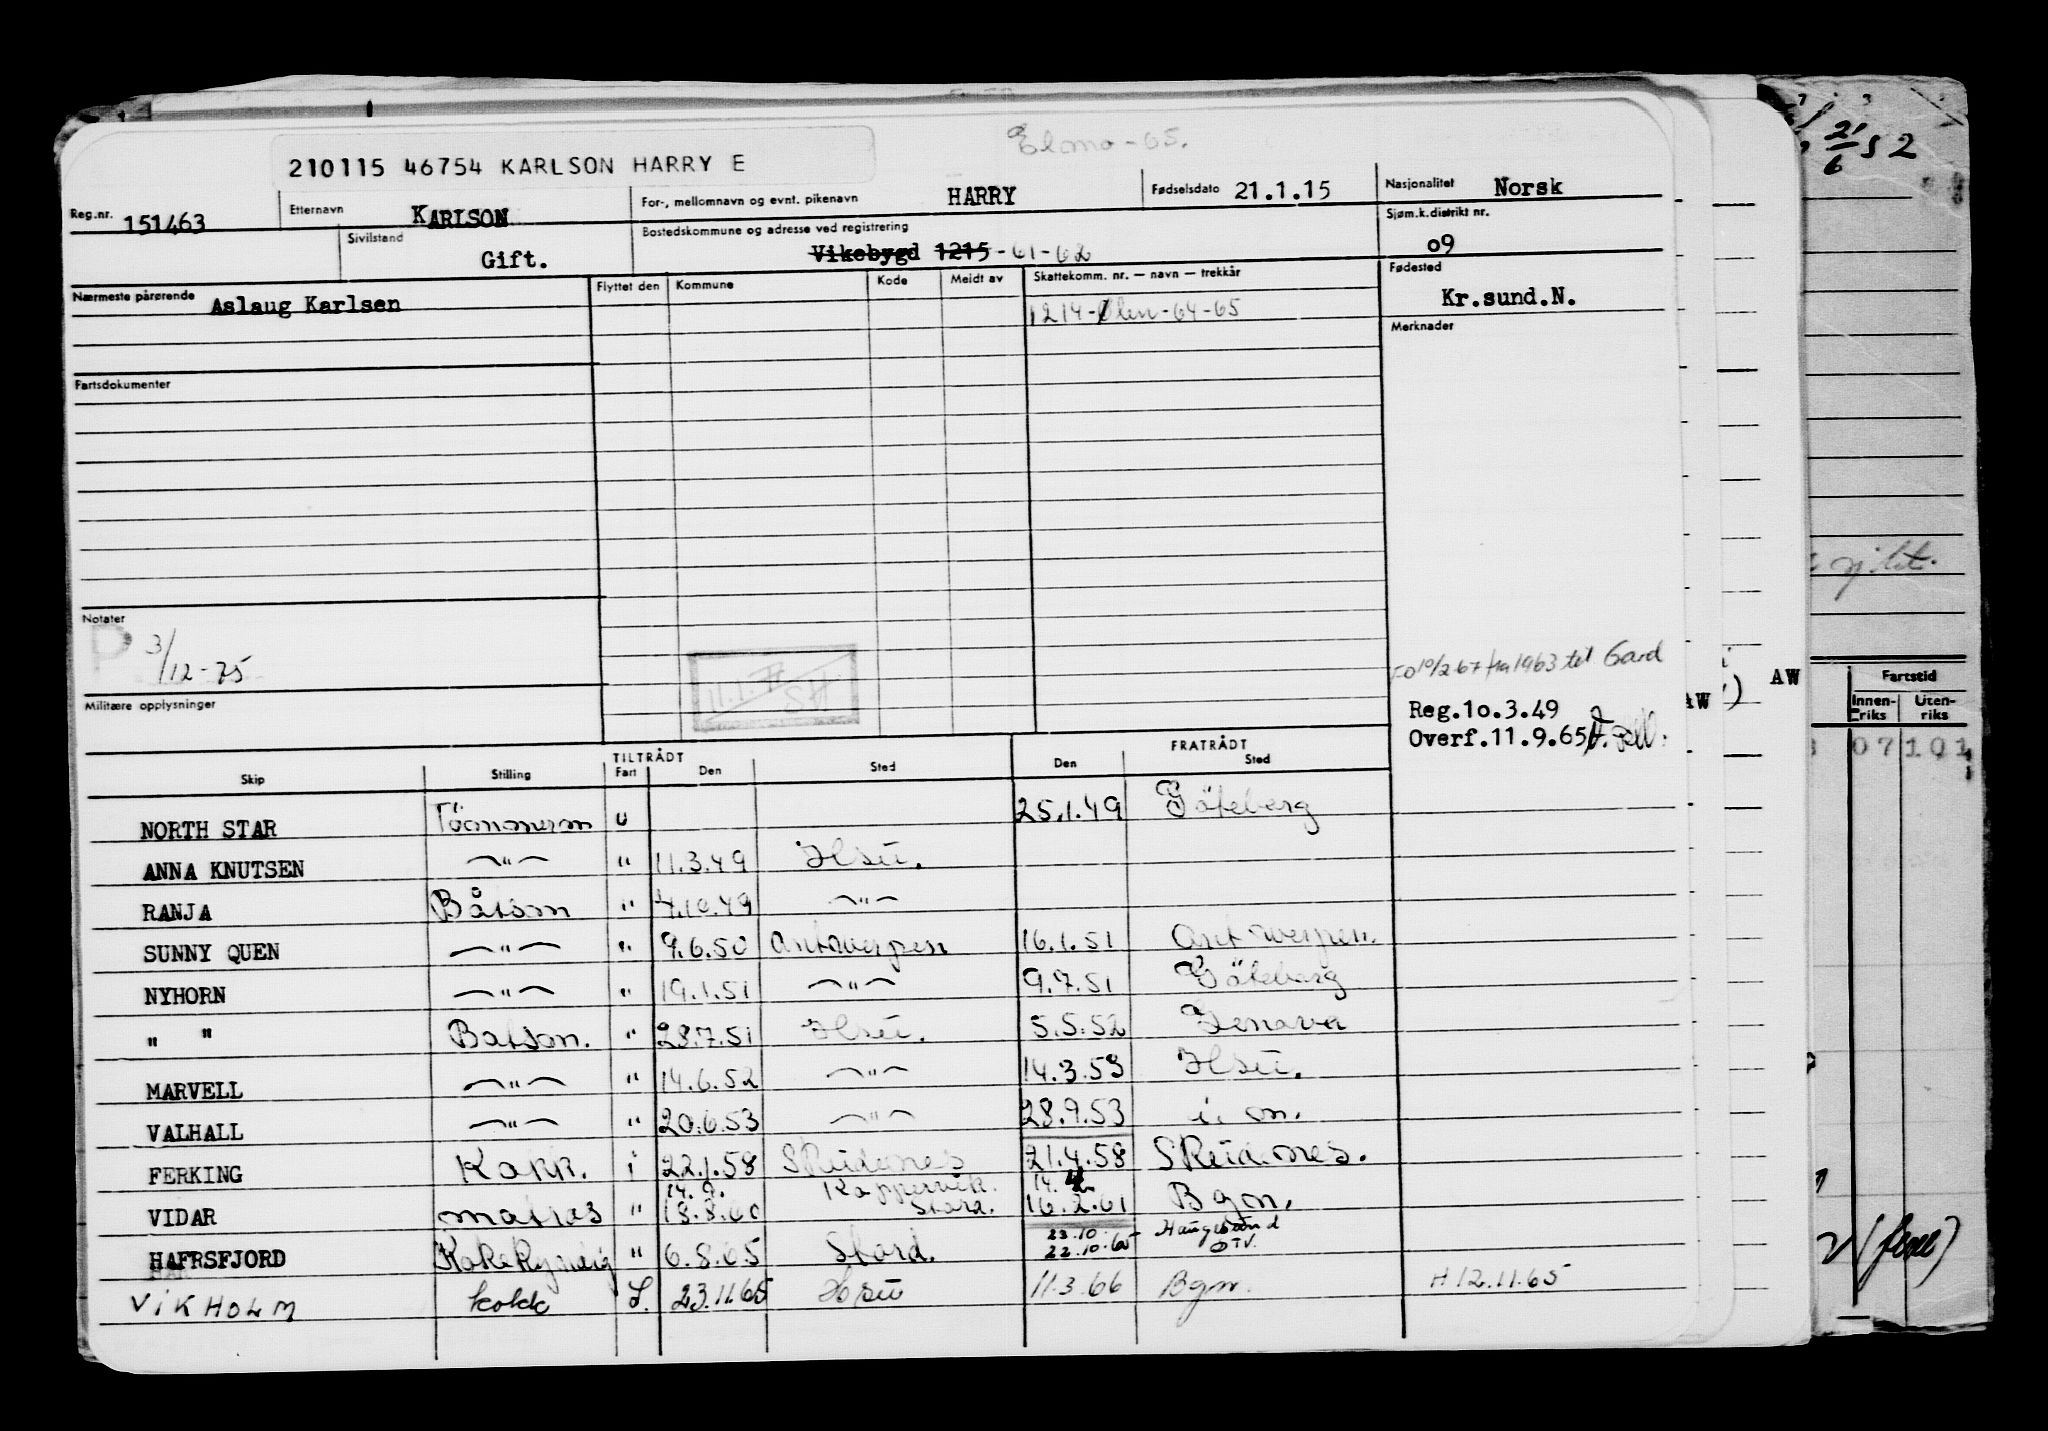 Elomo-65.
210115 46754 KARLSON HARRY E
Reg.nr. 151463 Etternavn KARLSON For-, mellomnavn og evnt. pikenavn HARRY Fødselsdato 21.1.15 Nasjonalitet Norsk
Sivilstand Gift. Bostedskommune og adresse ved registrering Vikebygd 1215-61-62 Sjøm.k.distrikt nr. 09
Nærmeste pårørende Aslaug Karlsen Flyttet den Kommune Kode Meldt av Skattekomm. nr. — navn — trekkår Fødested Kr.sund.N.
1214-Ølen-64-65
Merknader
Fartsdokumenter
Notater
P 3/12-75
11.1. SH
Militære opplysninger
10/2 67 fra 1963 til Gard
Reg.1o.3.49
Overf.11.9.65
TILTRÅDT FRATRÅDT
Skip Stilling Fart Den Sted Den Sted
NORTH STAR Tömmerm u 25.1.49 Göteborg
ANNA KNUTSEN —"— " 11.3.49 Hsu.
RANJA Båtsm " 4.10.49 —"—
SUNNY QUEN —"— " 9.6.50 Antwerpen 16.1.51 Antwerpen.
NYHORN —"— " 19.1.51 —"— 9.7.51 Göteborg
" " Batsm. " 28.7.51 Hsu. 5.5.52 Genova
MARVELL —"— " 14.6.52 —"— 14.3.53 Hsu.
VALHALL —"— " 20.6.53 —"— 28.9.53 i. m.
FERKING Kokk. i 22.1.58 Skudenes 21.4.58 Skudenes.
14.9. Koppervik. 14.
VIDAR matros " 18.8.60 Stord. 16.2.61 Bgn.
23.10 Haugesund
HAFRSFJORD Kokkyndig " 6.8.65 Stord. 22.10.65
VIKHOLM kokk I. 23.11.65 Hsu 11.3.66 Bgn. H 12.11.65
21/6 52
gift.
AW
AW
Fartstid
Innen-riks Uten-riks
07 101